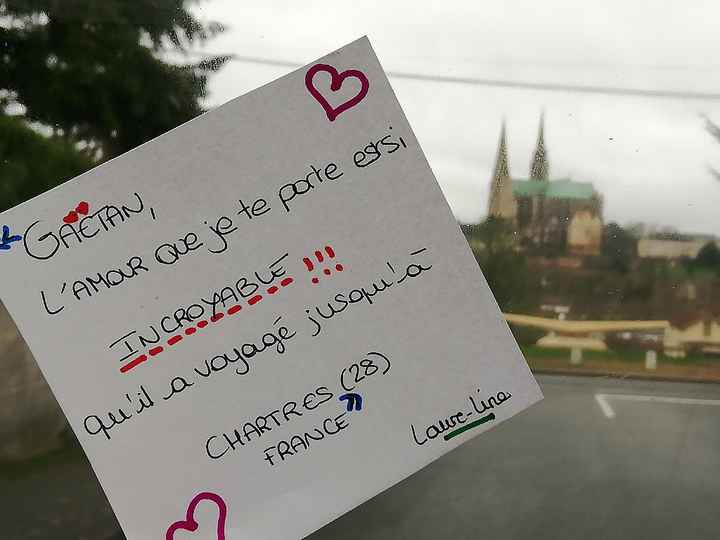 « GAËTAN,
L'AMOUR que je te porte est si
INCROYABLE !!!
qu'il a voyagé jusqu'à
CHARTRES (28)
FRANCE »
Laure-Line